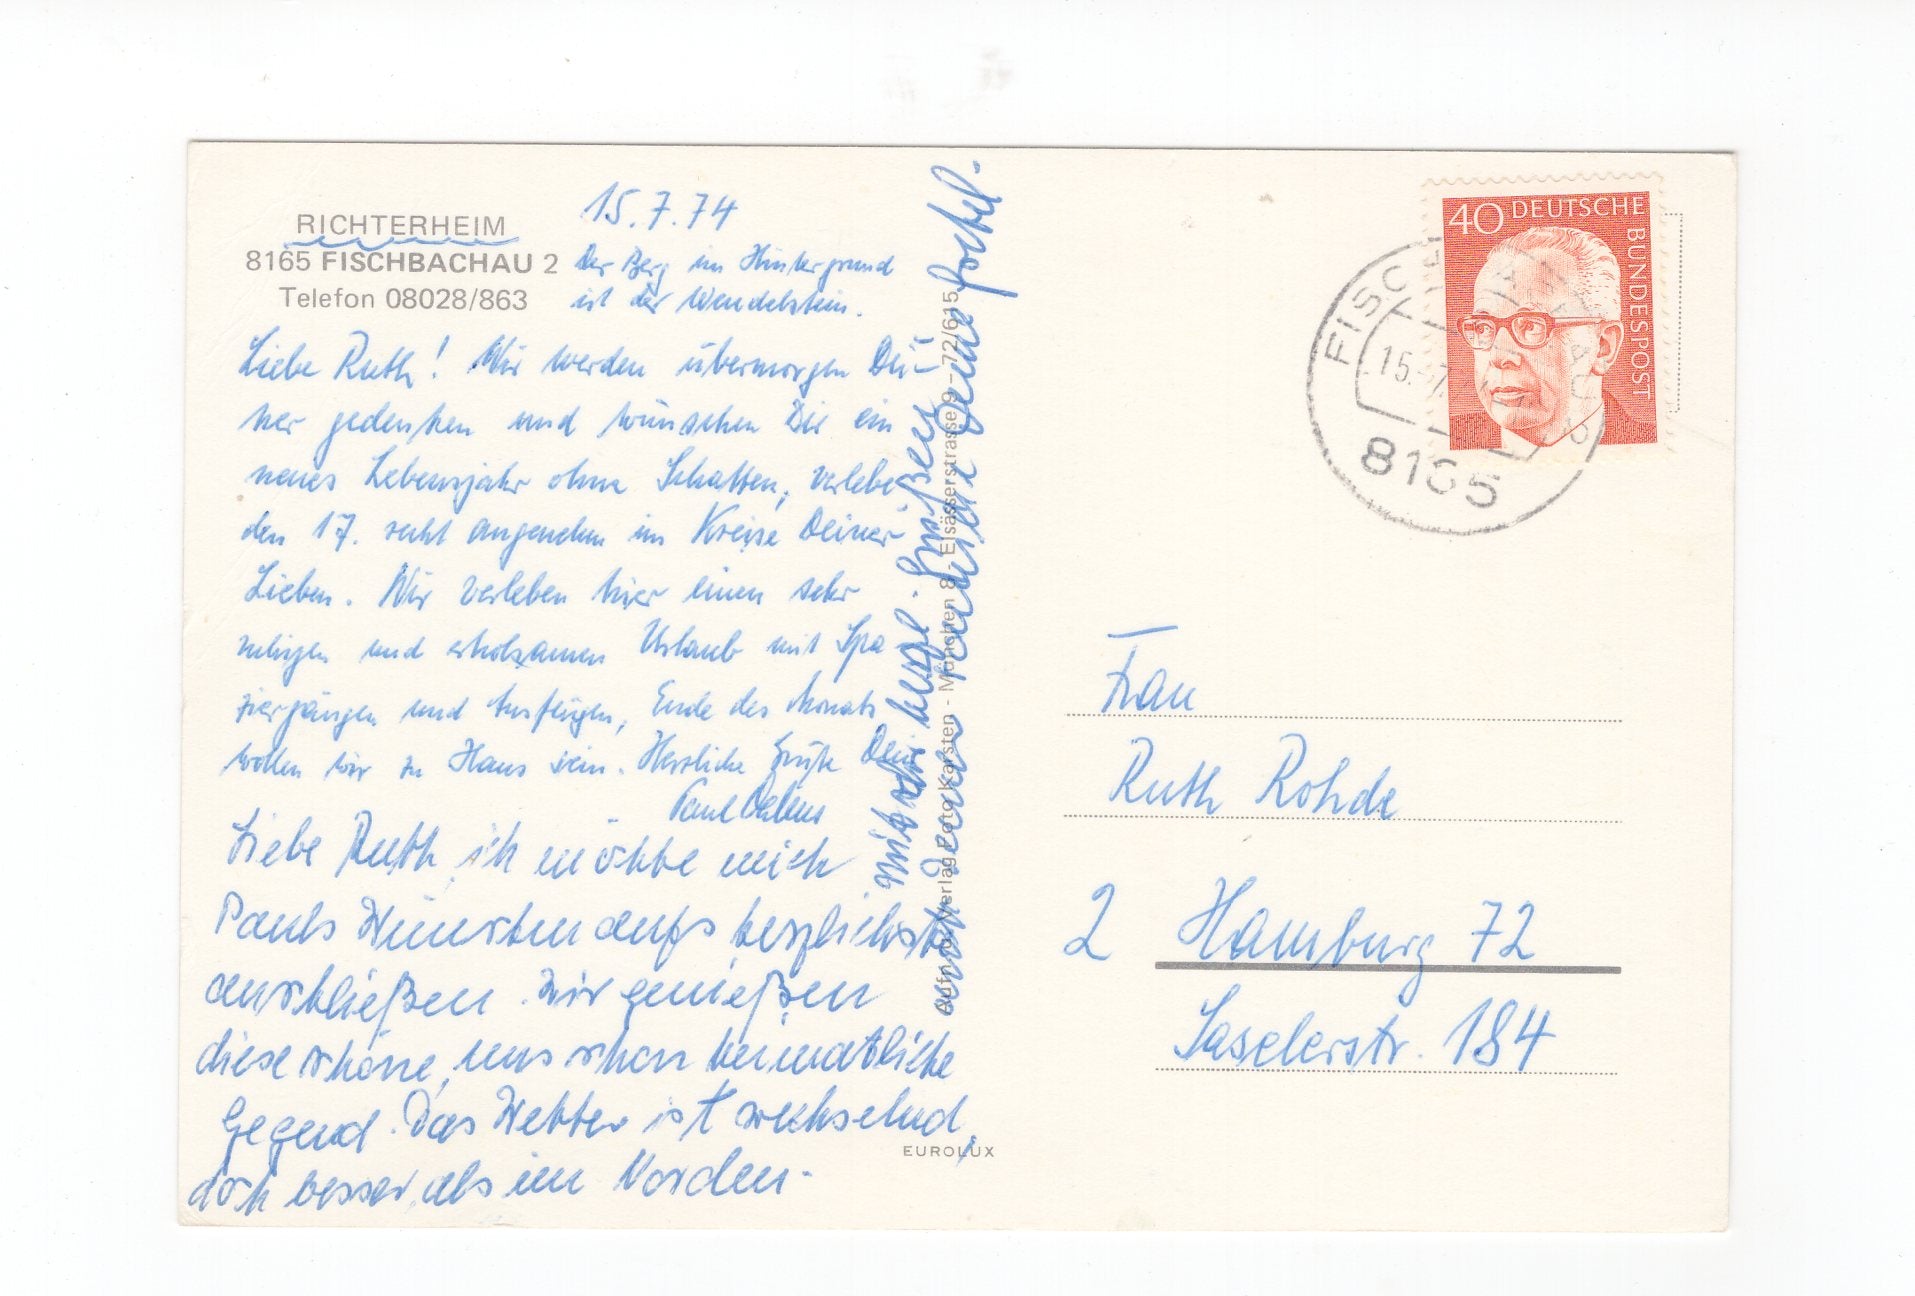 RICHTERHEIM
8165 FISCHBACHAU 2
Telefon 08028/863
15.7.74
Der Berg im Hintergrund
ist der Wendelstein.
Liebe Ruth! Wir werden übermorgen Dei-
ner gedenken und wünschen Dir ein
neues Lebensjahr ohne Schatten, verlebe
den 17. recht angenehm im Kreise Deiner
Lieben. Wir verleben hier einen sehr
ruhigen und erholsamen Urlaub mit Spa-
ziergängen und Ausflügen, Ende des Monats
wollen wir zu Haus sein. Herzliche Grüße Dein
Paul
Liebe Ruth, ich möchte mich
Pauls Wünschen aufs herzlichste
anschließen. Wir genießen
diese schöne, uns schon heimatliche
Gegend. Das Wetter ist wechselnd,
doch besser als im Norden.
mit sehr herzl. Grüßen
auch Deine
Aufn. u. Verlag Foto Karsten - München 8 - Elsässerstrasse 9 - 72/615
EUROLUX
40 DEUTSCHE BUNDESPOST
FISCHBACHAU
15.-7.
8165
Frau
Ruth Rohde
2 Hamburg 72
Saselerstr. 184